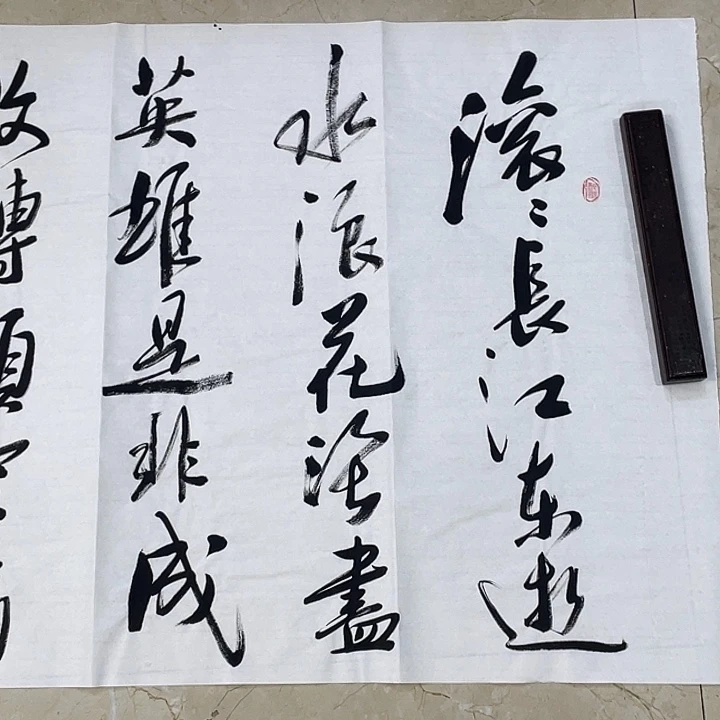 滾〻長江东逝
水浪花淘盡
英雄是非成
敗轉頭空